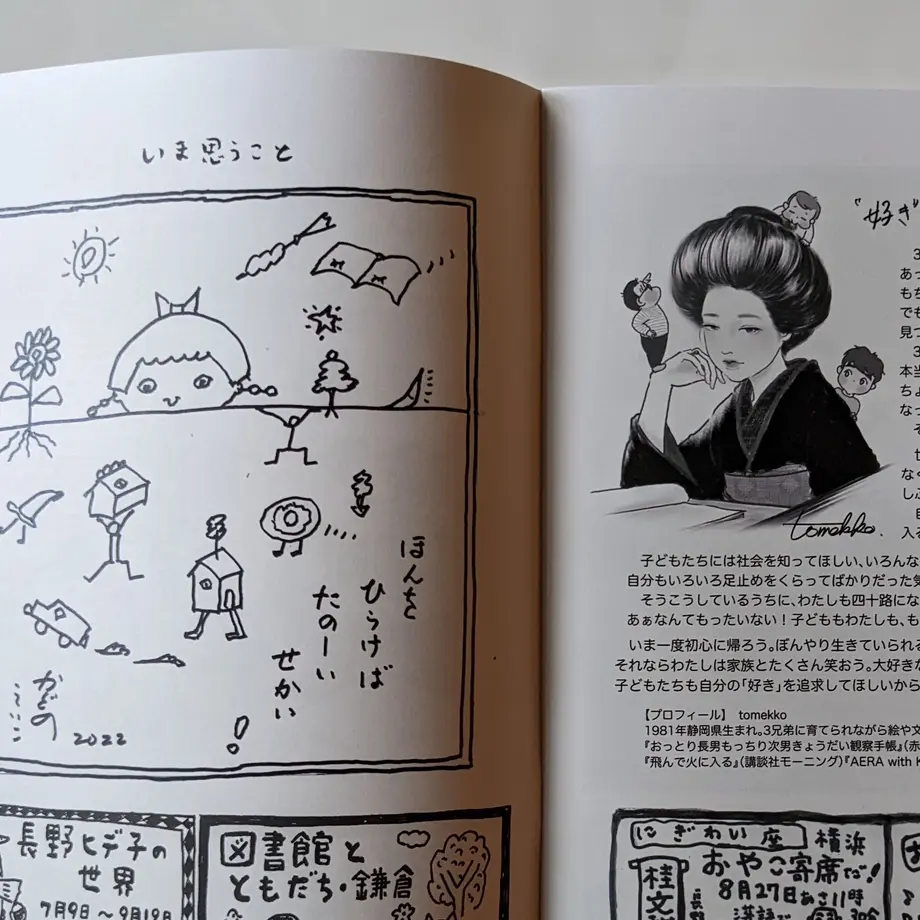 いま思うこと
ほんを
ひらけば
たのーしい
せかい
!
かどの
えいこ
2022
長野ヒデ子の
世界
7月9日～9月19日
図書館と
ともだち・鎌倉
"好き"
3
あっ
もち
でも
見つ
3
本当
ちょ
なっ
そ
世
なく
しぶ
自
入れ
tomekko.
子どもたちには社会を知ってほしい、いろんな
自分もいろいろ足止めをくらってばかりだった気
そうこうしているうちに、わたしも四十路にな
あぁなんてもったいない！子どももわたしも、も
いま一度初心に帰ろう。ぼんやり生きていられる
それならわたしは家族とたくさん笑おう。大好きな
子どもたちも自分の「好き」を追求してほしいから
【プロフィール】 tomekko
1981年静岡県生まれ。3兄弟に育てられながら絵や文
『おっとり長男もっちり次男きょうだい観察手帳』（赤
『飛んで火に入る』（講談社モーニング）『AERA with K
にぎわい座 横浜
おやこ寄席だ!
8月27日あさ11時
桂文
長野
落語で